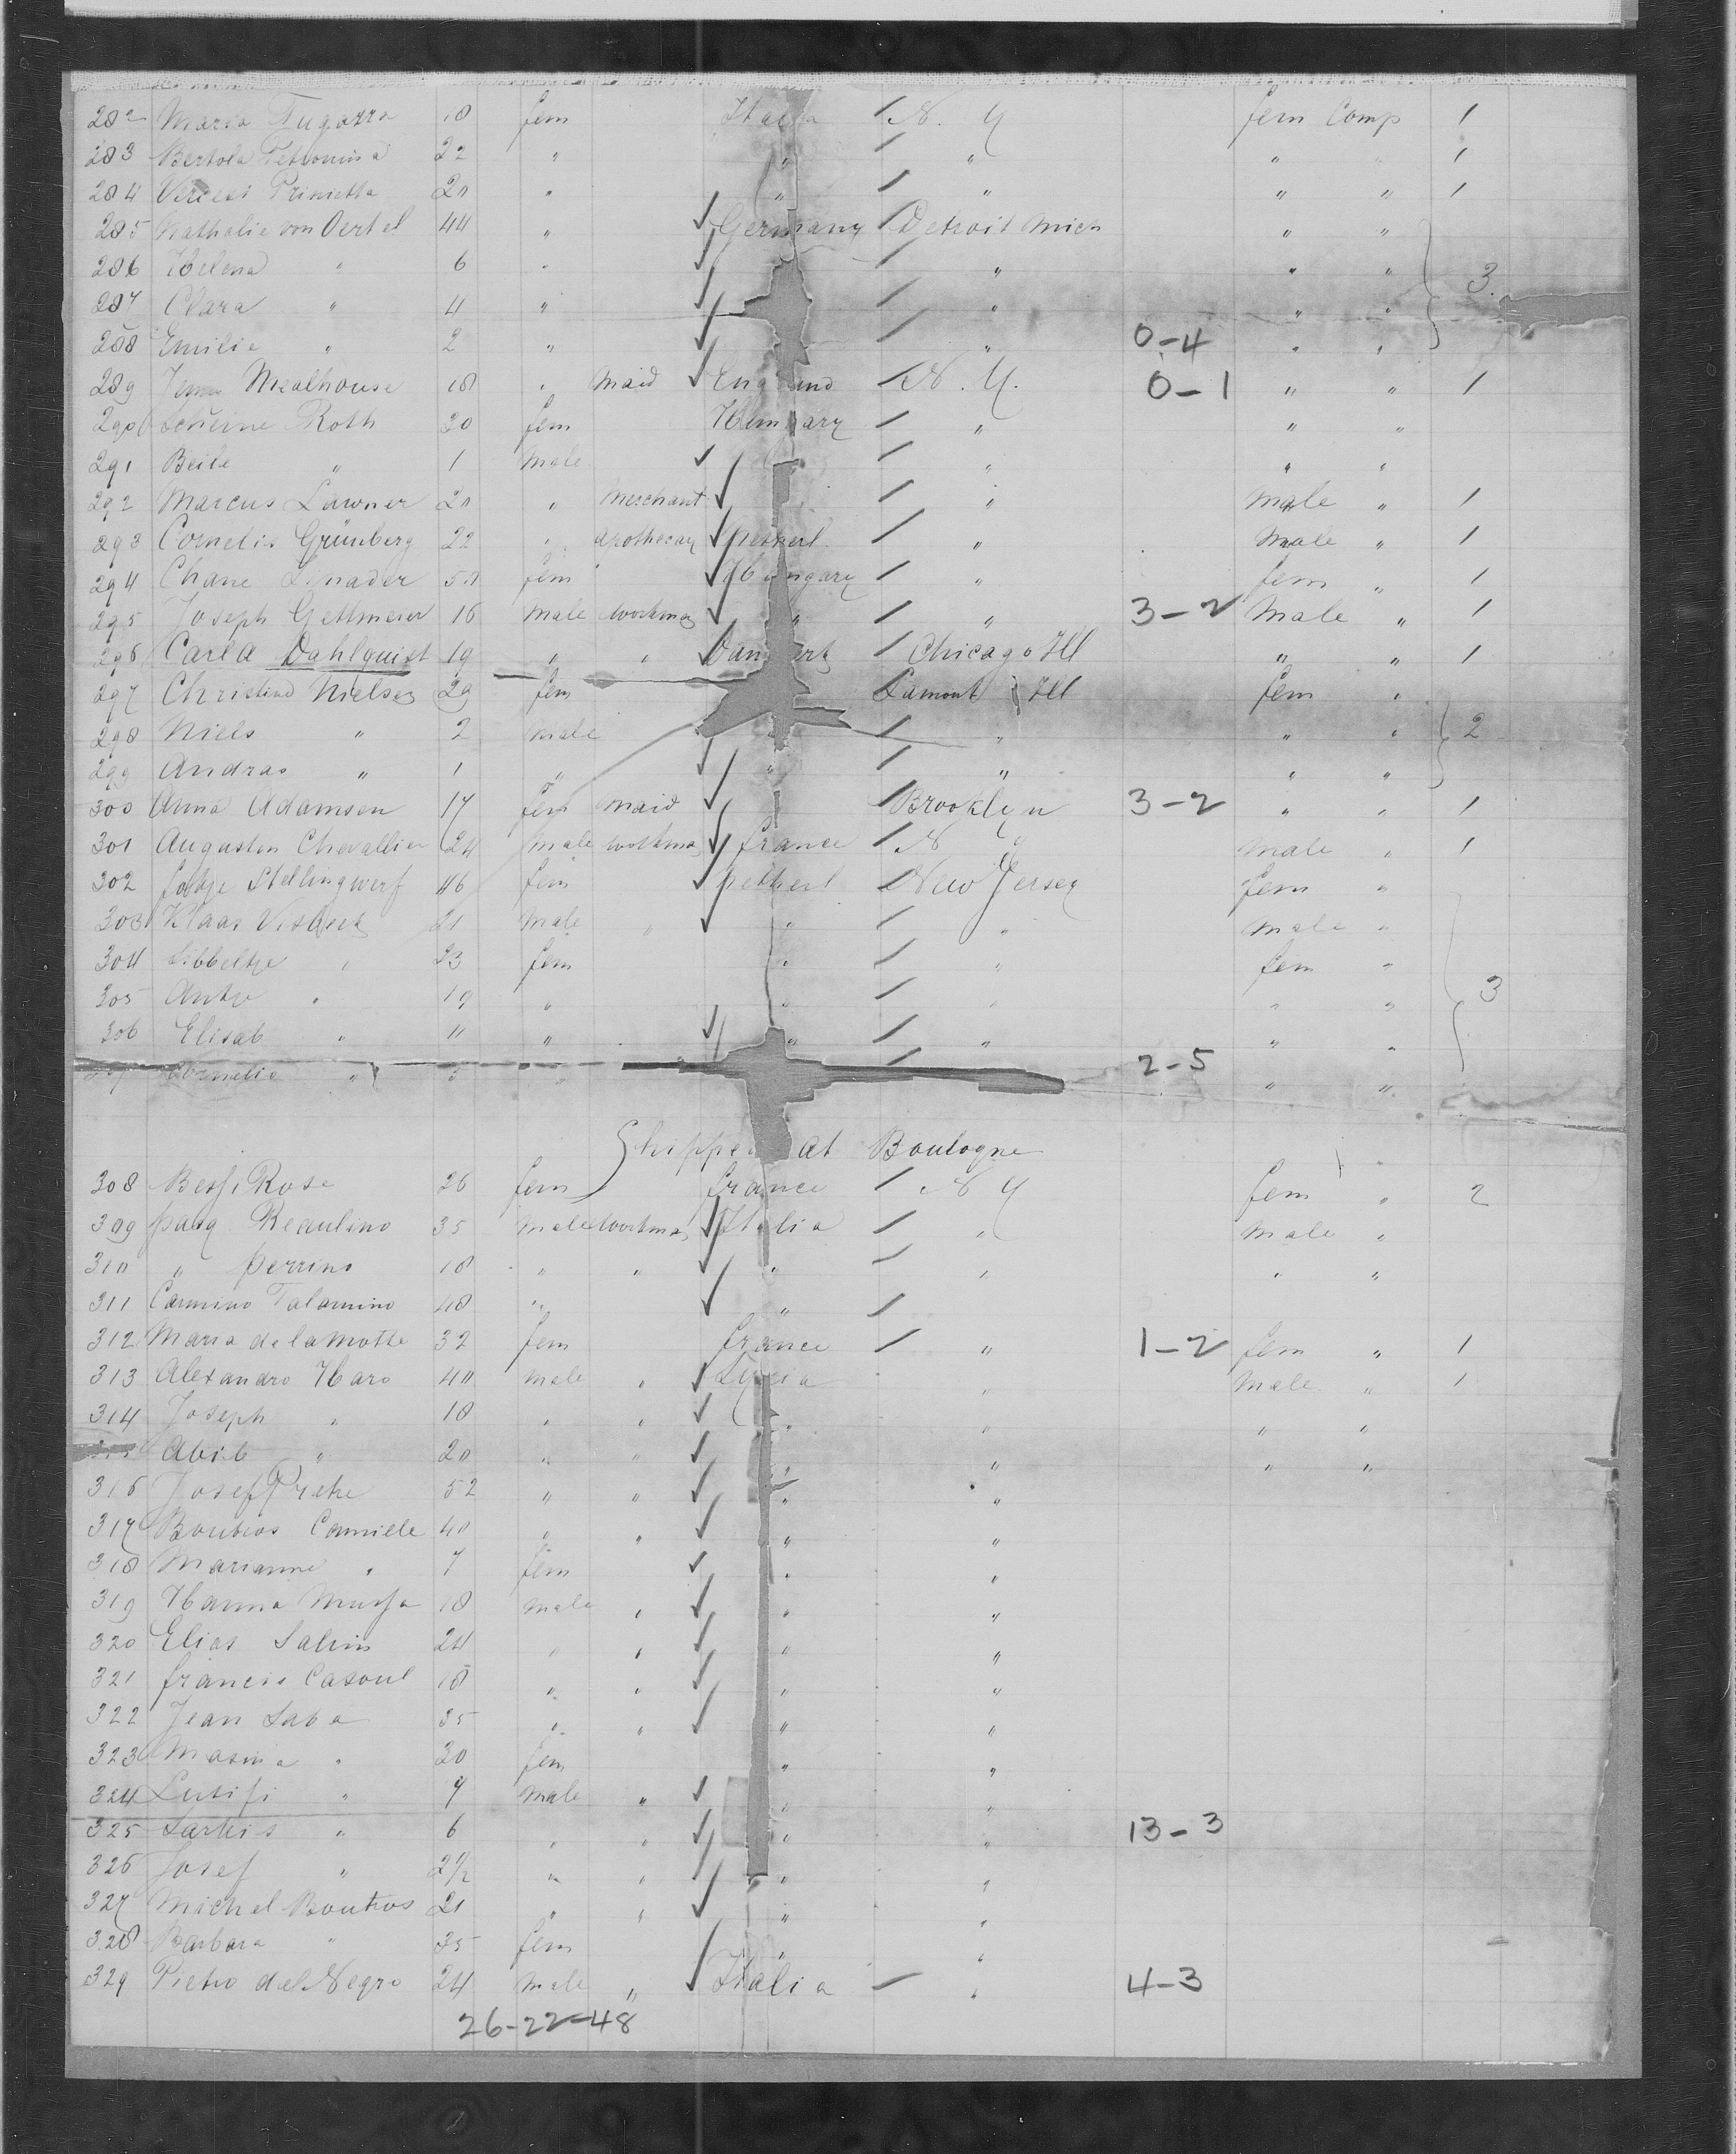 282 Maria Fugazza 18 fem Italia N. Y fem Comp 1
283 Bertola Petronina 22 " " " " " 1
284 Vercesi Prinietta 20 " " " " " 1
285 Nathalie von Oertel 44 " Germany Detroit Mich " "
286 Helena " 6 " " " " 3
287 Clara " 4 " " " "
288 Emilie " 2 " " 0-4 " "
289 Mealhouse 18 " maid England N. Y. 0-1 " " 1
290 Roth 30 fem Hungary " " "
291 Beile " 1 male " " "
292 Marcus Lawner 20 " merchant " male " 1
293 Cornelis Grünberg 22 " apothecary netherl. " male " 1
294 Chane 50 fem Hungary " fem " 1
295 Joseph Gettmeier 16 male workman " " 3-2 male " 1
296 Carla Dahlquist 19 " " Danmark Chicago Ill " " 1
297 Christine Nielsen 29 fem Lamont Ill fem "
298 Niels " 2 male " " " " 2
299 Andras " 1 " " " " "
300 Anna Adamsen 17 fem maid Brooklyn 3-2 " " 1
301 Augusten Chevallier 24 male workman france N Y male " 1
302 Stellingwerf 46 fem netherl New Jersey fem "
303 Klaas Visbeek 21 male " " " male "
304 Sibbeltje " 23 fem " " fem "
305 Antje " 19 " " " " " 3
306 Elisab " 11 " " " " "
Cornelis " " 2-5 " "
Shipped at Boulogne
308 Bessi Rose 26 fem france N Y fem " 2
309 pasq Reaulino 35 male workman Italia " male "
310 " perrino 18 " " " " " "
311 Carmino Talamino 48 " "
312 Maria de la Motte 32 fem france " 1-2 fem " 1
313 Alexandro Haro 40 male " Syria " male " 1
314 Joseph " 18 " " " " " "
Abib " 20 " " " " " "
316 Josef 52 " " " "
317 Boutros Camille 40 " " " "
318 Marianne " 7 fem " "
319 Hanna Mussa 18 male " " "
320 Elias Salim 24 " " " "
321 francis Casoul 18 " " " "
322 Jean Saba 35 " " " "
323 Masina " 30 fem " "
324 Lutifi " 9 male " " "
325 Sarkis " 6 " " " " 13-3
326 Josef " 2 1/2 " " " "
327 Michel Boutros 21 " " " "
328 Barbara " 25 fem " "
329 Pietro del Negro 24 male " Italia " 4-3
26-22-48